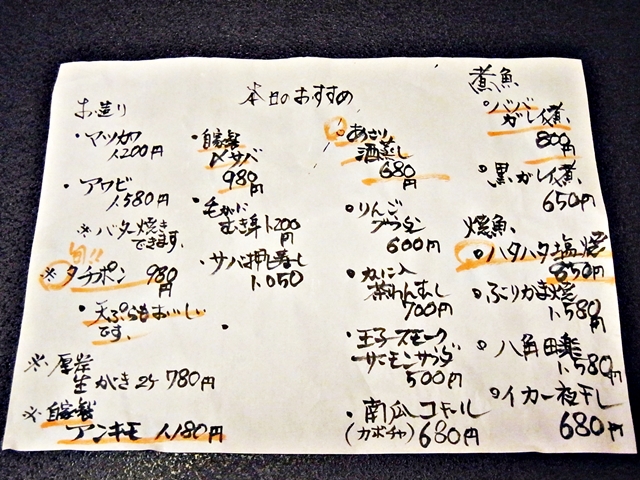 本日のおすすめ
お造り
・マツカワ
1,200円
・アワビ
1,580円
※バター焼き
できます。
旬!!
※タチポン 980円
・天ぷらもおいしい
です。
※厚岸
生がき2ケ 780円
※自家製
アンキモ 1,180円
・自家製
〆サバ
980円
・毛がに
むき身 1,200
円
・サバ押し寿し
1,050
・あさり
酒蒸し
680
円
・りんご
グラタン
600円
・カニ入
茶わんむし
700円
・王子スモーク
サーモンサラダ
500円
・南瓜コキール
(カボチャ) 680円
煮魚
・ババ
ガレイ煮
800円
・黒ガレイ煮
650円
焼魚
・ハタハタ塩焼
850円
・ぶりかま焼
1,580
円
・八角田楽
1,580円
・イカ一夜干し
680円